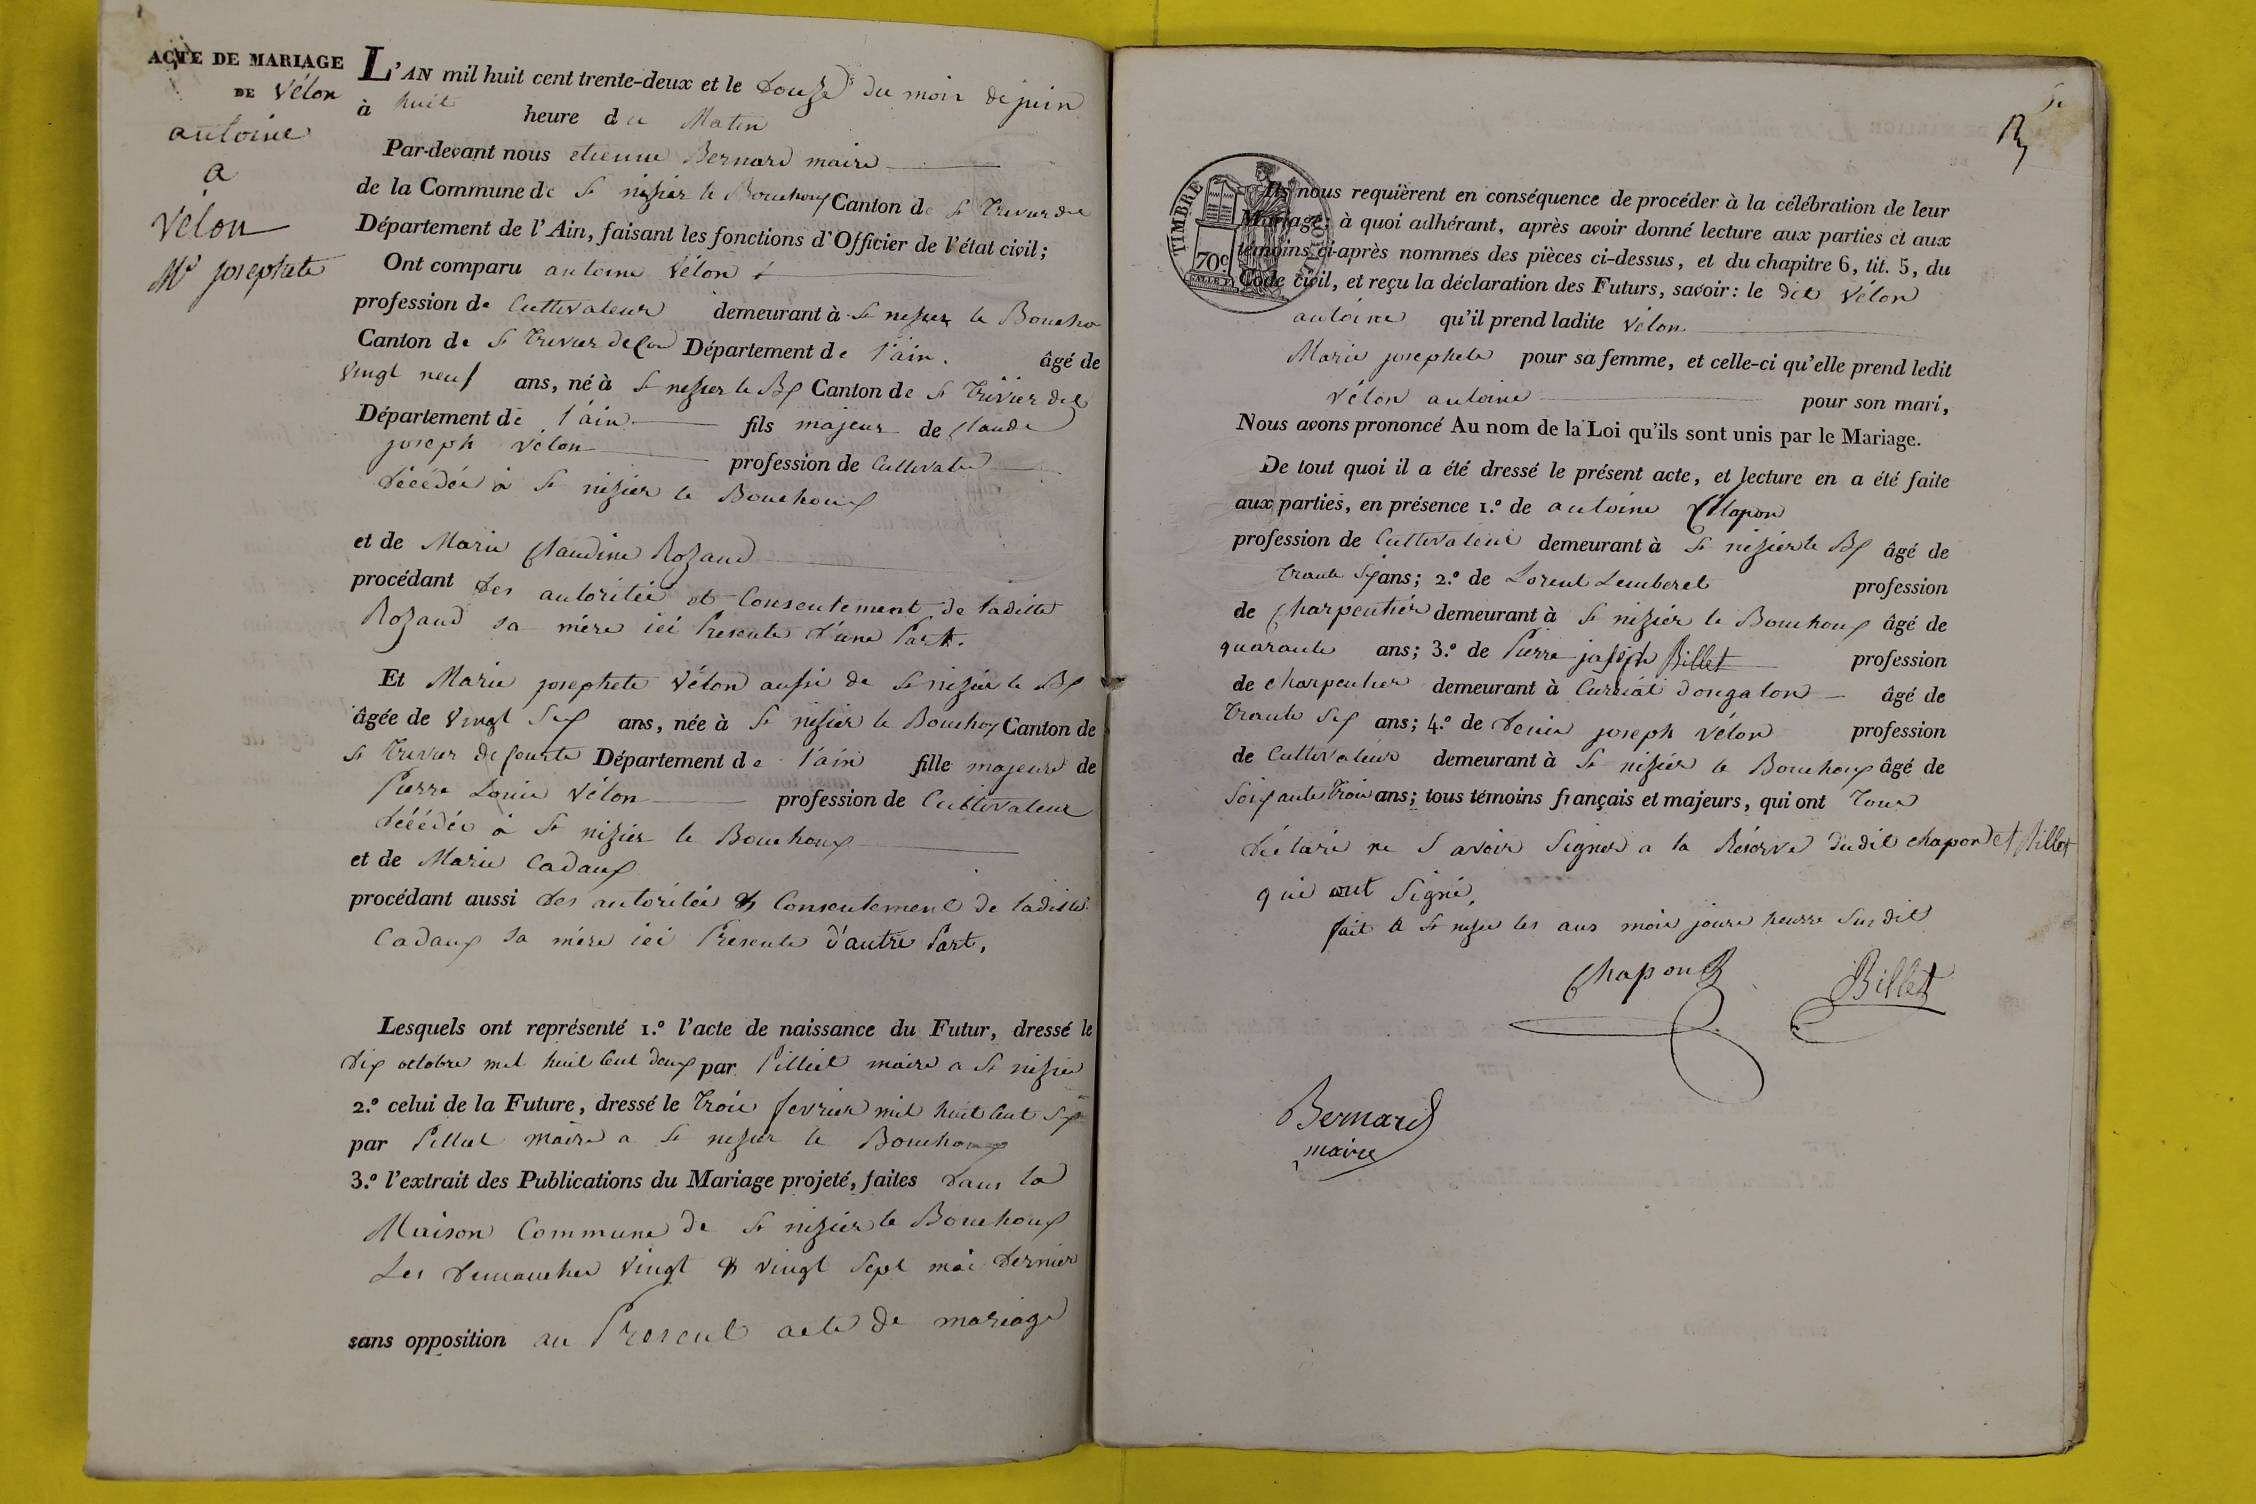 ACTE DE MARIAGE
DE Vélon
antoine
a
Vélon
Mie josephete
L'AN mil huit cent trente-deux et le douze du mois de juin
à huit heure du Matin
Par-devant nous etienne Bernard maire
de la Commune de St nizier le Bouchoux Canton de St Trivier de
Département de l'Ain, faisant les fonctions d'Officier de l'état civil;
Ont comparu antoine Vélon
profession de Cultivateur demeurant à St nizier le Boucho
Canton de St Trivier de Cou Département de l'ain. âgé de
Vingt neuf ans, né à St nizier le Bx Canton de St Trivier de
Département de l'ain fils majeur de Claude
joseph vélon profession de Cultivateur
décédée à St nizier le Bouchoux
et de Marie Claudine Rozand
procédant des autoritée et Consentement de laditte
Rozand sa mére ici Presente d'une Part.
Et Marie josephete Vélon aussi de St nizier le Bx
âgée de Vingt Six ans, née à St nizier le Bouchox Canton de
St Trivier de Courte Département de l'ain fille majeure de
Pierre Louis Vélon profession de Cultivateur
décédée à St nizier le Bouchoux
et de Marie Cadaux
procédant aussi des autoritée & Consentement de laditte
Cadaux sa mére ici Presente d'autre Part,
Lesquels ont représenté 1.º l'acte de naissance du Futur, dressé le
dix octobre mil huit Cent deux par Pilliet maire a St nizier
2.º celui de la Future, dressé le Trois fevrier mil huit Cent Six
par Pilliet maire a St nizier le Bouchoux
3.º l'extrait des Publications du Mariage projeté, faites dans la
Maison Commune de St nizier le Bouchoux
Les dimanches Vingt & vingt Sept mai dernier
sans opposition au Present acte de mariage
TIMBRE ROYAL
70c
Ils nous requièrent en conséquence de procéder à la célébration de leur
Mariage: à quoi adhérant, après avoir donné lecture aux parties et aux
témoins ci-après nommés des pièces ci-dessus, et du chapitre 6, tit. 5, du
Code civil, et reçu la déclaration des Futurs, savoir: le dit Vélon
antoine qu'il prend ladite vélon
Marie josephete pour sa femme, et celle-ci qu'elle prend ledit
vélon antoine pour son mari,
Nous avons prononcé Au nom de la Loi qu'ils sont unis par le Mariage.
De tout quoi il a été dressé le présent acte, et lecture en a été faite
aux parties, en présence 1.º de antoine Chapon
profession de Cultivateur demeurant à St nizier le Bx âgé de
Trante Six ans; 2.º de Lorent Lemberet profession
de Charpentier demeurant à St nizier le Bouchoux âgé de
quarante ans; 3.º de Pierre joseph Billet profession
de Charpentier demeurant à Curciat dongalon âgé de
Trante Six ans; 4.º de Denis joseph Vélon profession
de Cultivateur demeurant à St nizier le Bouchoux âgé de
Soixante Trois ans; tous témoins français et majeurs, qui ont Tous
déclaré ne Savoir Signer a la Réserve dudit chapon et Billet
qui ont Signé,
fait a St nizier les ans mois jours heurre Susdit
Chapon Billet
Bernard
maire